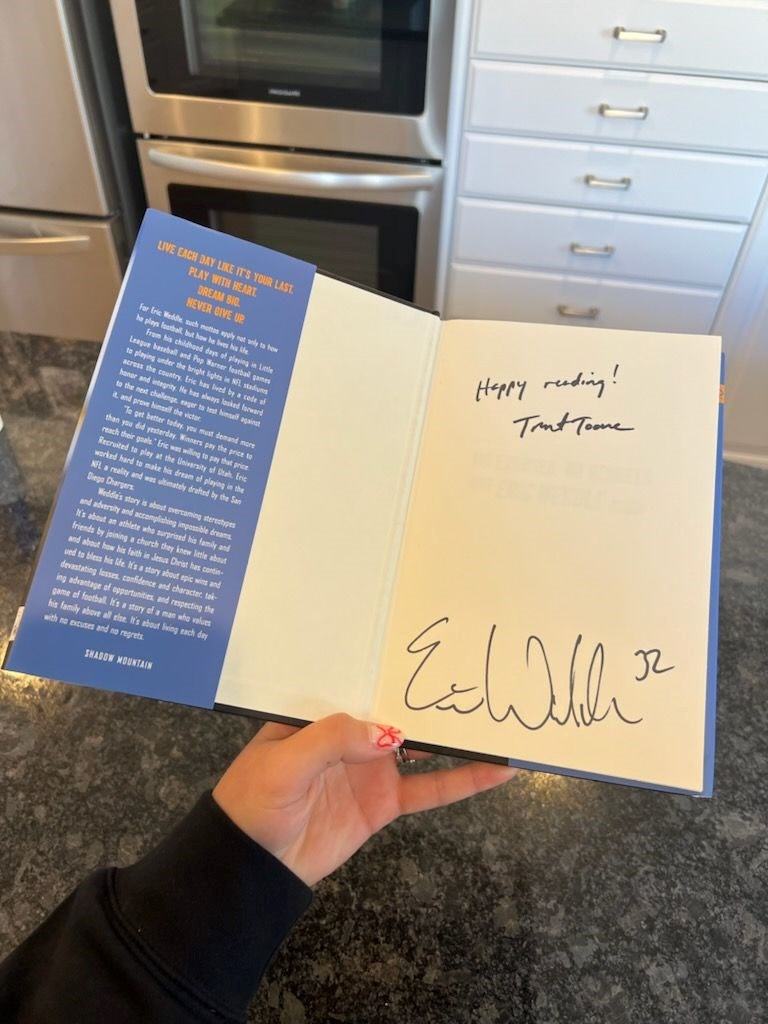 FRIGIDAIRE
LIVE EACH DAY LIKE IT'S YOUR LAST.
PLAY WITH HEART.
DREAM BIG.
NEVER GIVE UP.
For Eric Weddle, such mottos apply not only to how
he plays football, but how he lives his life.
From his childhood days of playing in Little
League baseball and Pop Warner football games
to playing under the bright lights in NFL stadiums
across the country, Eric has lived by a code of
honor and integrity. He has always looked forward
to the next challenge, eager to test himself against
it, and prove himself the victor.
"To get better today, you must demand more
than you did yesterday. Winners pay the price to
reach their goals." Eric was willing to pay that price.
Recruited to play at the University of Utah, Eric
worked hard to make his dream of playing in the
NFL a reality and was ultimately drafted by the San
Diego Chargers.
Weddle's story is about overcoming stereotypes
and adversity and accomplishing impossible dreams.
It's about an athlete who surprised his family and
friends by joining a church they knew little about
and about how his faith in Jesus Christ has contin-
ued to bless his life. It's a story about epic wins and
devastating losses, confidence and character, tak-
ing advantage of opportunities, and respecting the
game of football. It's a story of a man who values
his family above all else. It's about living each day
with no excuses and no regrets.
SHADOW MOUNTAIN
Happy reading!
Trent Toone
Eric Weddle 32